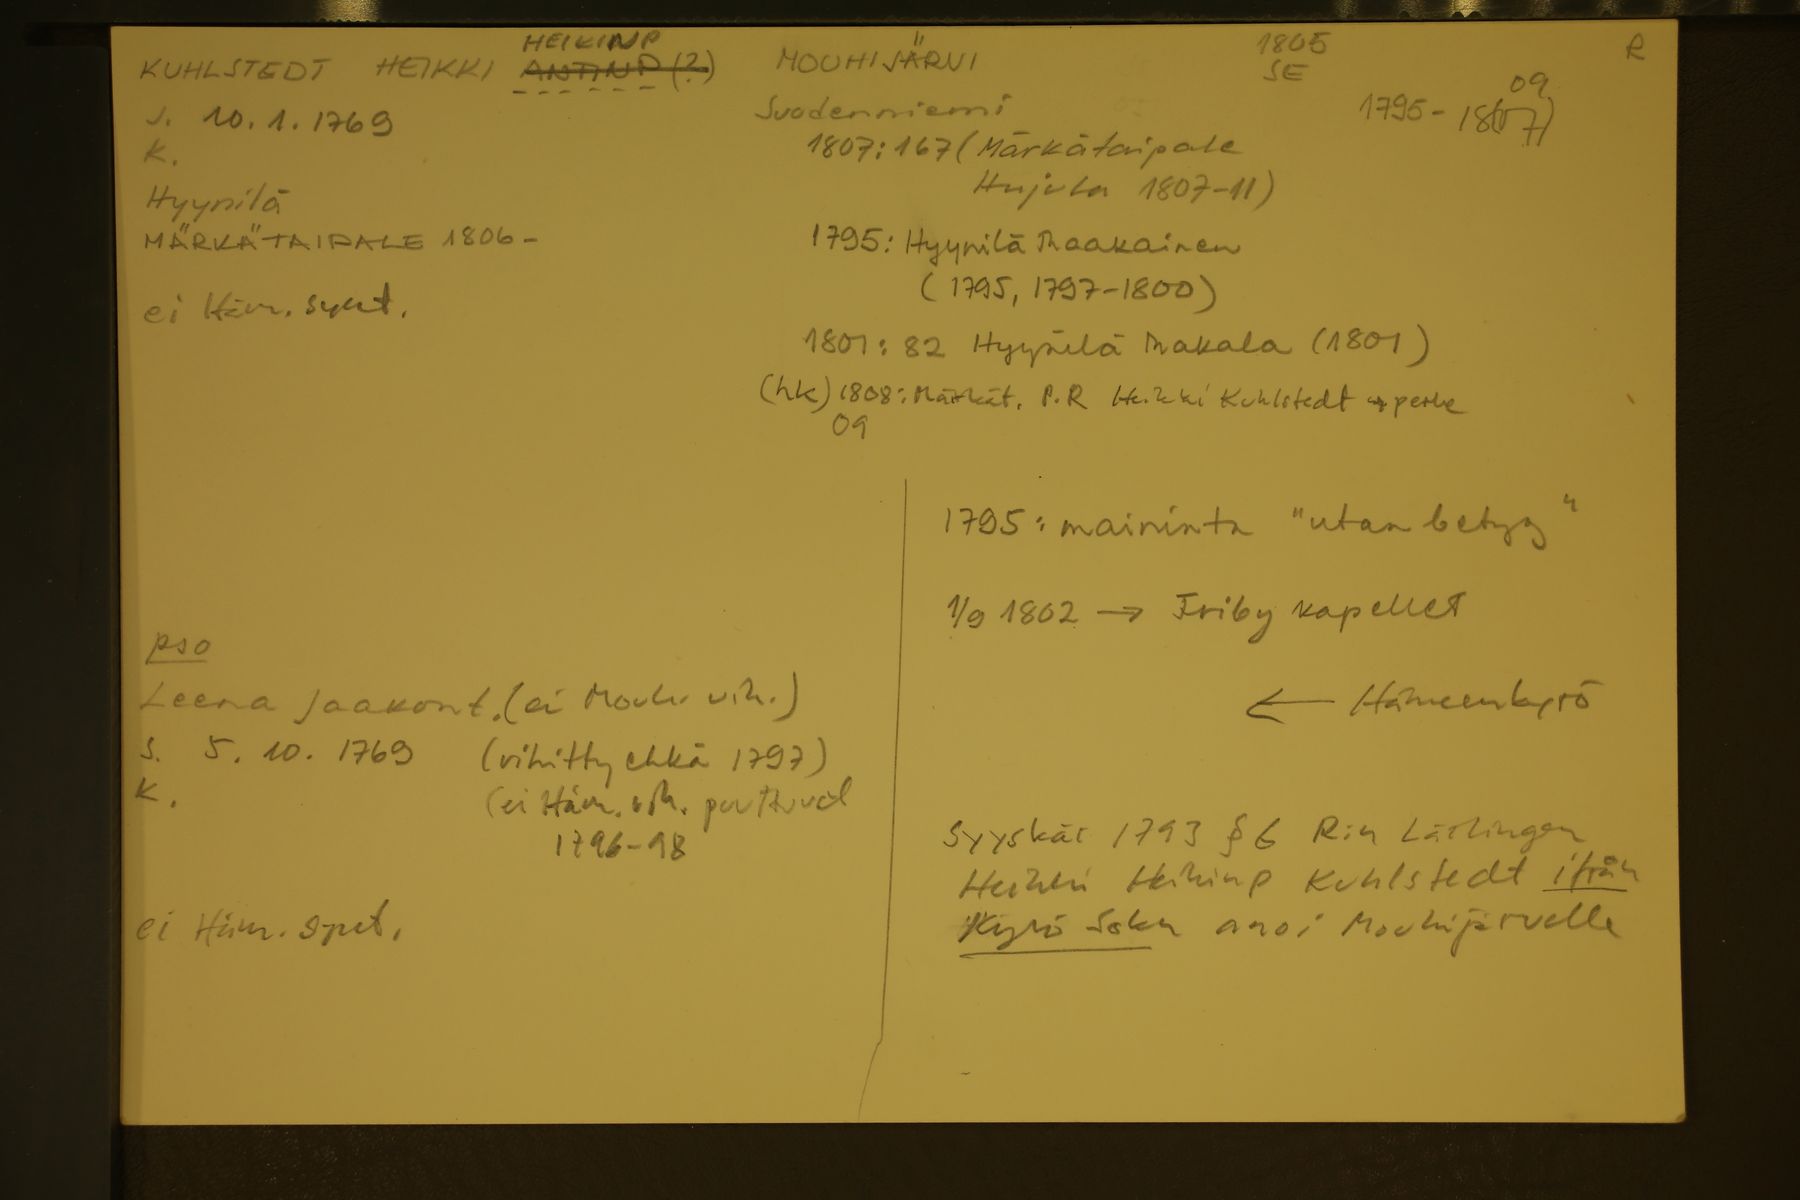 KUHLSTEDT HEIKKI HEIKINP ANTINP (?)
S. 10.1.1769
K.
Hyynilä
MÄRKÄTAIPALE 1806-
ei Häm. synt.
MOUHIJÄRVI
1805
SE
R
1795-18(07) 09
Suodenniemi
1807: 167 (Märkätaipale
Hujula 1807-11)
1795: Hyynilä Maakainen
(1795, 1797-1800)
1801: 82 Hyynilä Makala (1801)
(hk) 1808: Märkät. P.R Heikki Kuhlstedt + perhe
09
pso
Leena Jaakont. (ei Mouh. vih.)
S. 5.10.1769 (vihitty ehkä 1797)
K. (ei Häm. vih. puuttuvat
1796-98
ei Häm. synt.
1795: maininta "utan betyg"
1/9 1802 → Friby kapellet
← Hämeenkyrö
Syyskär 1793 § 6 R:n Lärlingen
Heikki Heikinp Kuhlstedt ifrån
Kyrö Sokn anoi Mouhijärvelle